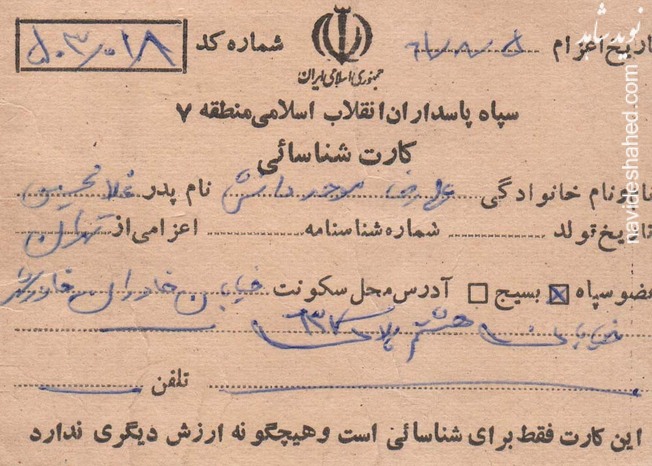 تاریخ اعزام
شماره کد
جمهوری اسلامی ایران
سپاه پاسداران انقلاب اسلامی منطقه ۷
کارت شناسائی
نام و نام خانوادگی علیرضا موحد دانش نام پدر غلامحسین
تاریخ تولد شماره شناسنامه اعزامی از تهران
عضو سپاه بسیج آدرس محل سکونت خیابان خاوران
هشتم پلاک
تلفن
این کارت فقط برای شناسائی است و هیچگونه ارزش دیگری ندارد
نوید شاهد
navideshahed.com